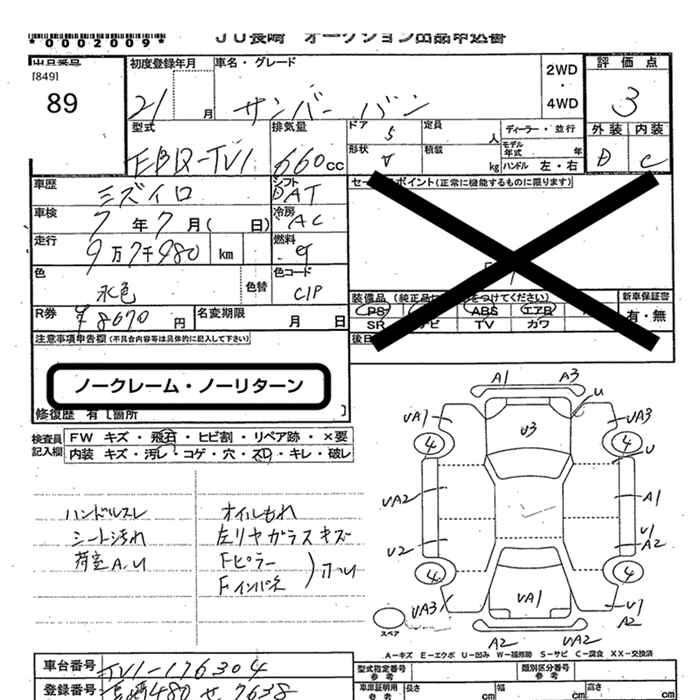 *0002009*
JU長崎 オークション出品申込書
出品番号
[849]
89
初度登録年月
21 月
車名・グレード
サンバー バン
2WD
・
4WD
評価点
3
外装 内装
D C
型式
EBD-TV1
排気量
660cc
ドア 5
定員 人
ディーラー・並行
モデル年式 年
形状 V
積載 kg
ハンドル 左・右
車歴
ミズイロ
シフト
DAT
車検
7年7月(日)
冷房
AC
走行
9万7千980 km
燃料
色
水色
色替
色コード
CIP
R券 ¥8670円
名変期限 月 日
セールスポイント(正常に機能するものに限ります)
新車保証書
有・無
PS ABS エアB
SR ナビ TV カワ
後日
注意事項申告欄(不具合内容等は具体的に記入して下さい)
ノークレーム・ノーリターン
修復歴 有[箇所 ]
検査員記入欄
FW キズ・飛石・ヒビ割・リペア跡・×要
内装 キズ・汚レ・コゲ・穴・スレ・キレ・破レ
ハンドルスレ
シート汚れ
荷室A.U
オイルもれ
左リヤガラスキズ
Fピラー
Fインパネ
A1 A3
U
UA1 UA3
4 4
U3
U
UA2 A1
U1
U2 A2
4 4
UA3 UA1 U1
A2
スペア
A2 UA2
A-キズ E-エクボ U-凹み W-補修跡 S-サビ C-腐食 XX-交換済
車台番号
TV1-176304
登録番号
長崎480せ7638
型式指定番号
参考
類別区分番号
参考
車庫証明用
参考
長さ cm
幅 cm
高さ cm